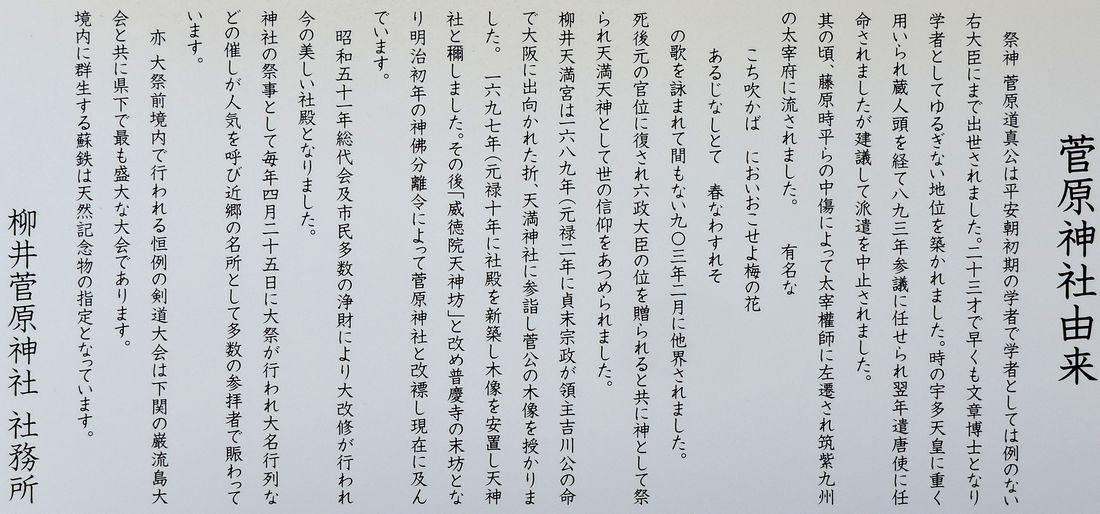 菅原神社由来
祭神 菅原道真公は平安朝初期の学者で学者としては例のない
右大臣にまで出世されました。二十三才で早くも文章博士となり
学者としてゆるぎない地位を築かれました。時の宇多天皇に重く
用いられ蔵人頭を経て八九三年参議に任せられ翌年遣唐使に任
命されましたが建議して派遣を中止されました。
其の頃、藤原時平らの中傷によって太宰權師に左遷され筑紫九州
の太宰府に流されました。 有名な
こち吹かば においおこせよ梅の花
あるじなしとて 春なわすれそ
の歌を詠まれて間もない九〇三年二月に他界されました。
死後元の官位に復され六政大臣の位を贈られると共に神として祭
られ天満天神として世の信仰をあつめられました。
柳井天満宮は一六八九年(元禄二年に貞末宗政が領主吉川公の命
で大阪に出向かれた折、天満神社に参詣し菅公の木像を授かりま
した。 一六九七年(元禄十年に社殿を新築し木像を安置し天神
社と穪しました。その後「威徳院天神坊」と改め普慶寺の末坊とな
り明治初年の神佛分離令によって菅原神社と改褾し現在に及ん
でいます。
昭和五十一年総代会及市民多数の浄財により大改修が行われ
今の美しい社殿となりました。
神社の祭事として毎年四月二十五日に大祭が行われ大名行列な
どの催しが人気を呼び近郷の名所として多数の参拝者で賑わって
います。
亦 大祭前境内で行われる恒例の剣道大会は下関の巌流島大
会と共に県下で最も盛大な大会であります。
境内に群生する蘇鉄は天然記念物の指定となっています。
柳井菅原神社 社務所